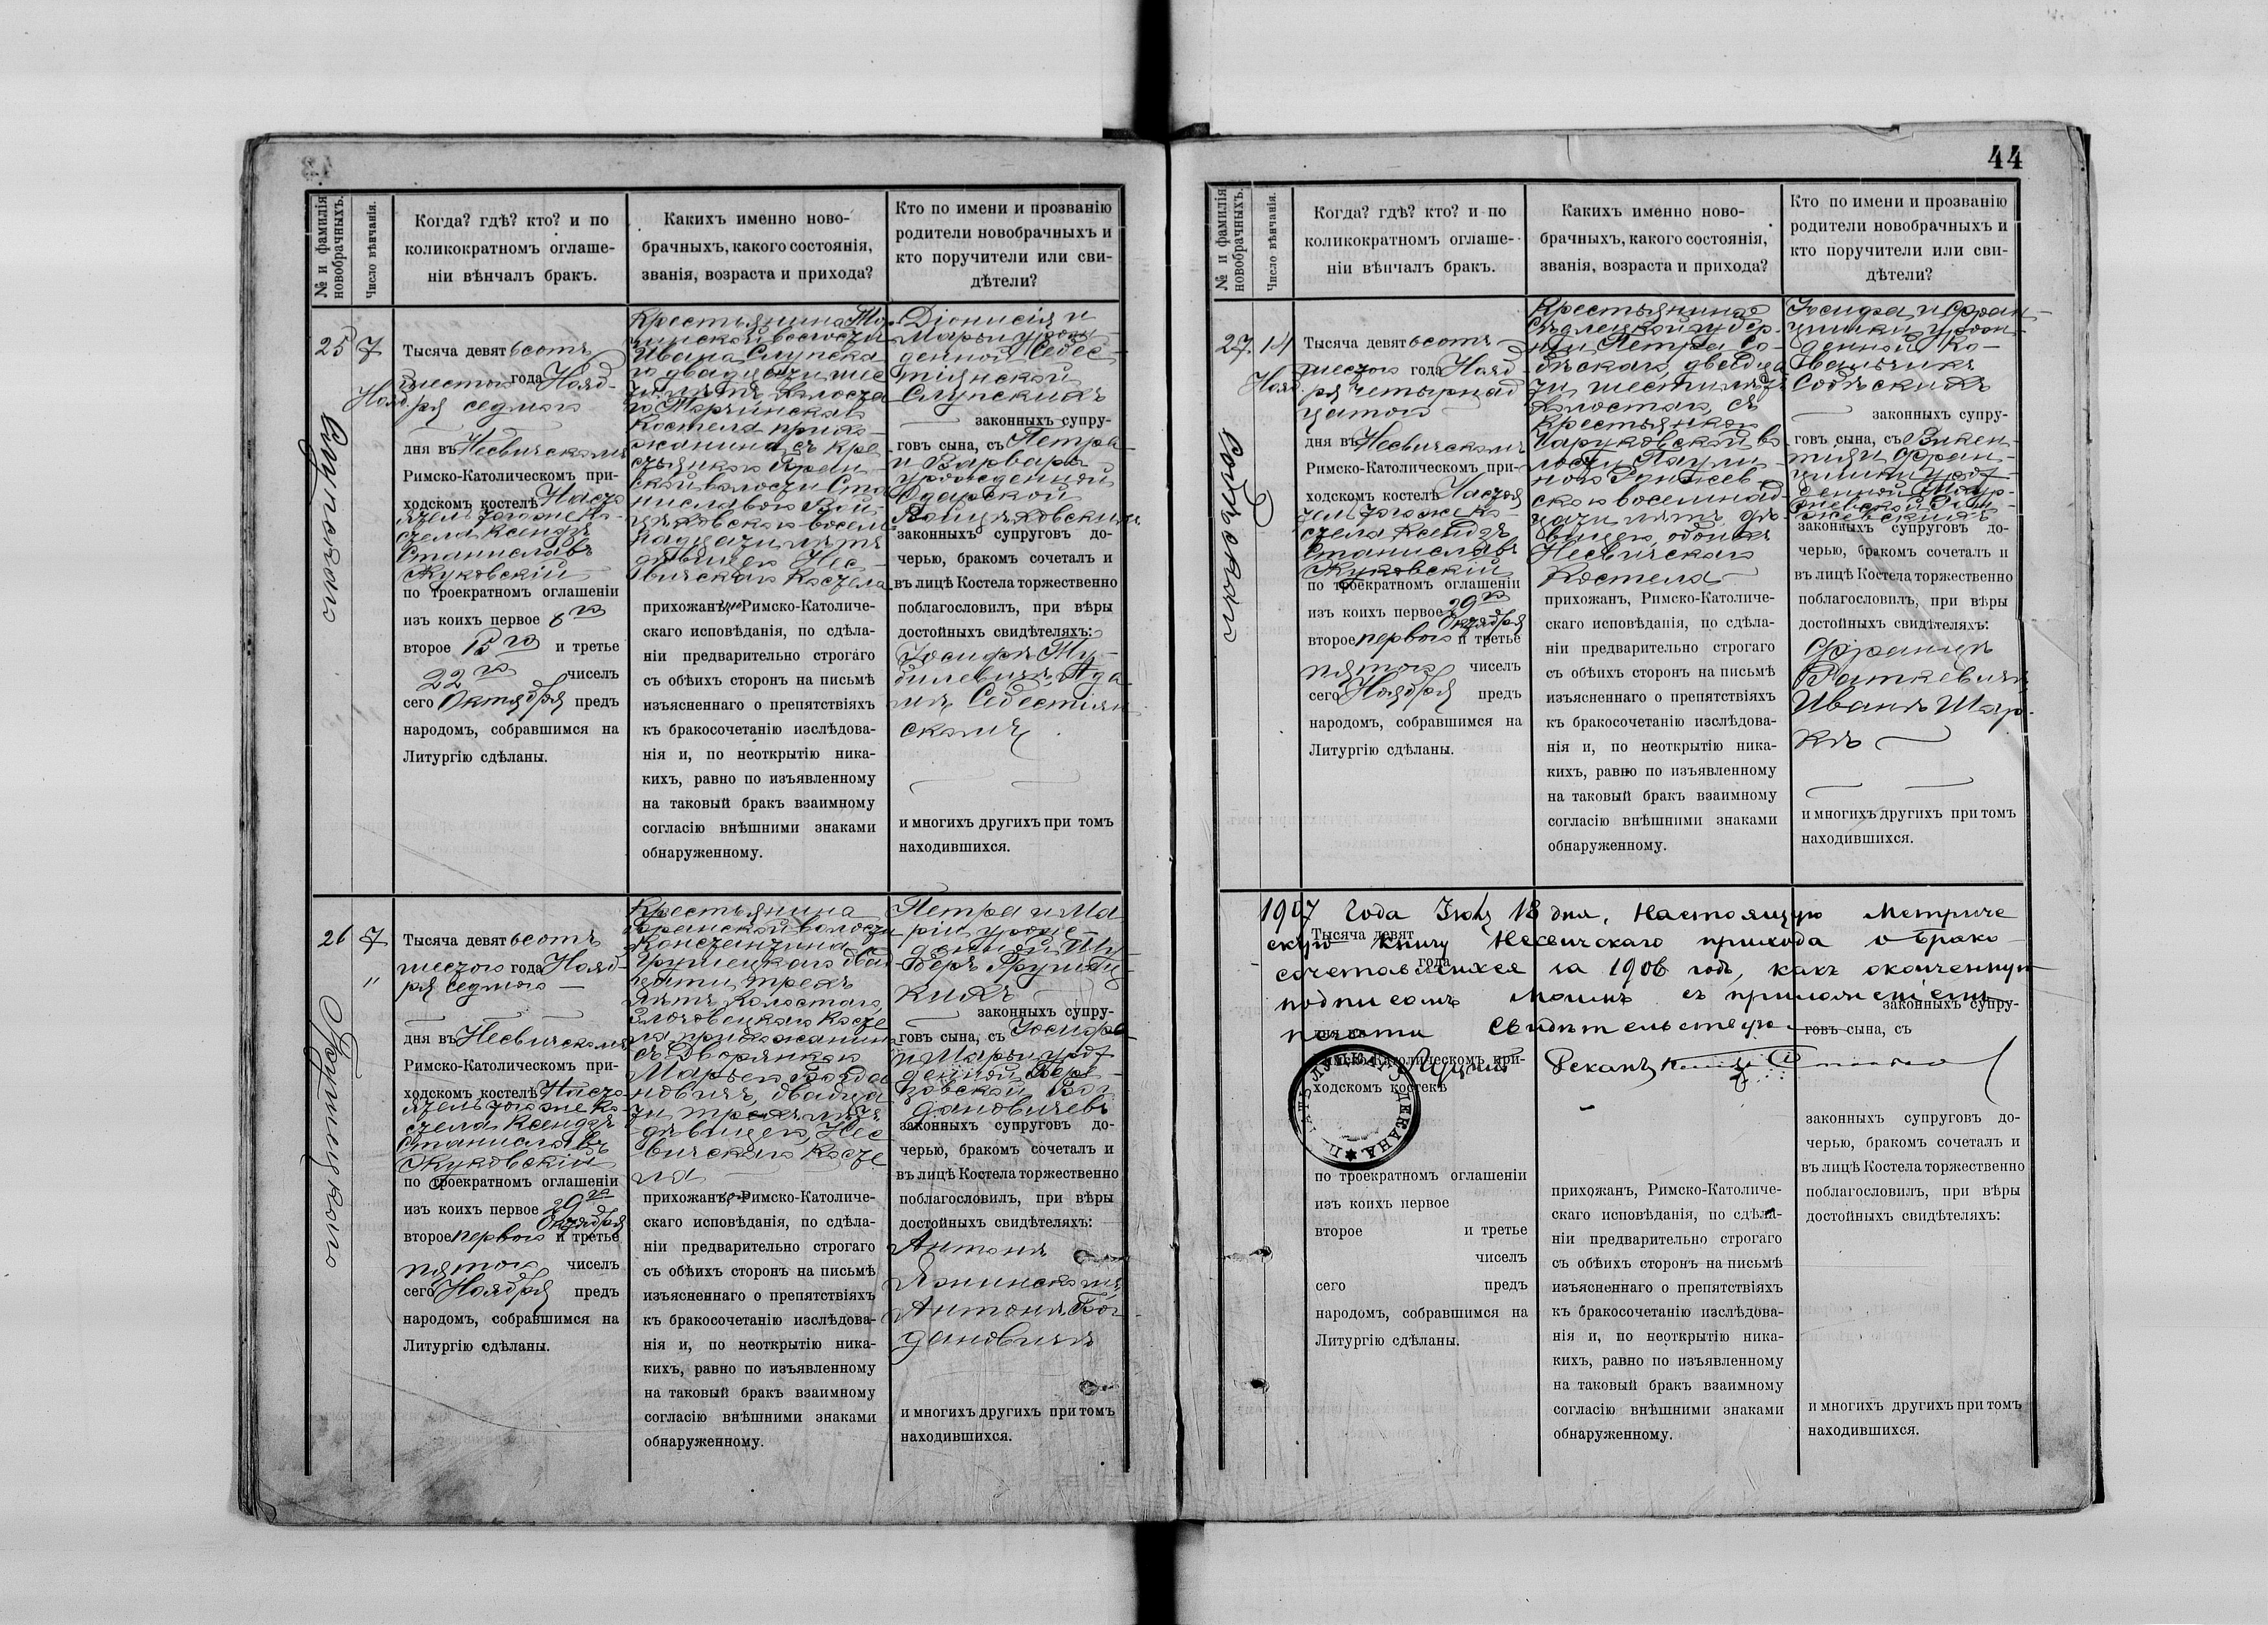 44
№ и фамилія
новобрачныхъ.
Число вѣнчанія.
Когда? гдѣ? кто? и по
коликократномъ оглаше-
ніи вѣнчалъ бракъ.
Какихъ именно ново-
брачныхъ, какого состоянія,
званія, возраста и прихода?
Кто по имени и прозванію
родители новобрачныхъ и
кто поручители или сви-
дѣтели?
25
7
Нояб.
Тысяча девятьсотъ
шестого года Нояб-
ря седмого
дня въ Несвичскомъ
Римско-Католическомъ при-
ходскомъ костелѣ Насто
ятель тогоже Ко-
стела Ксендзъ
Станиславъ
Жуковскій
по троекратномъ оглашеніи
изъ коихъ первое 8го
второе 15го и третье
22го чиселъ
сего Октября предъ
народомъ, собравшимся на
Литургію сдѣланы.
Крестьянина
волости
Ивана Слупска
го двадцати шес
ти лѣтъ, холоста
го
Костела прихо-
жанина съ кре
стьянкою
ской волости Ста
ниславою Вой-
цѣховскою восем
надцати лѣтъ
дѣвицею Нес-
вичскаго Костела
прихожан Римско-Католиче-
скаго исповѣданія, по сдѣла-
ніи предварительно строгаго
съ обѣихъ сторонъ на письмѣ
изъясненнаго о препятствіяхъ
къ бракосочетанію изслѣдова-
нія и, по неоткрытію ника-
кихъ, равно по изъявленному
на таковый бракъ взаимному
согласію внѣшними знаками
обнаруженному.
Діонисія и
Марьи урож-
денной Себес-
тіянской
Слупскихъ
законныхъ супру-
говъ сына, съ Петра
и Варвары
урожденной
Войцѣховскихъ
законныхъ супруговъ до-
черью, бракомъ сочеталъ и
въ лицѣ Костела торжественно
поблагословилъ, при вѣры
достойныхъ свидѣтеляхъ:
Іосифѣ
Ада-
мѣ Себестіян
скомъ
и многихъ других при томъ
находившихся.
26
7
"
Грушецкого
Тысяча девятьсотъ
шестого года Нояб-
ря седмого
дня въ Несвичскомъ
Римско-Католическомъ при-
ходскомъ костелѣ Насто
ятель тогоже Ко-
стела Ксендзъ
Станиславъ
Жуковскій
по троекратномъ оглашеніи
изъ коихъ первое 29го
Октября
второе первого и третье
пятого чиселъ
сего Ноября предъ
народомъ, собравшимся на
Литургію сдѣланы.
Крестьянина
волости
Константина
Грушецкаго двад
цати трехъ
лѣтъ холостаго,
Косте
ла прихожанин
съ Дворянкою
Марьею Богда
новичъ, двадца
ти трехъ лѣтъ
дѣвицею, Нес
вичскаго Косте
ла
прихожан Римско-Католиче-
скаго исповѣданія, по сдѣла-
ніи предварительно строгаго
съ обѣихъ сторонъ на письмѣ
изъясненнаго о препятствіяхъ
къ бракосочетанію изслѣдова-
нія и, по неоткрытію ника-
кихъ, равно по изъявленному
на таковый бракъ взаимному
согласію внѣшними знаками
обнаруженному.
Петра и Ма
ріи урож-
денной Шу
беръ Грушец
кихъ
законныхъ супру-
говъ сына, съ Іосифа
и Марьи урож
денной
Бог
дановичевъ
законныхъ супруговъ до-
черью, бракомъ сочеталъ и
въ лицѣ Костела торжественно
поблагословилъ, при вѣры
достойныхъ свидѣтеляхъ:
Антонѣ
Антонѣ Бог
дановичѣ
и многихъ другихъ при томъ
находившихся.
№ и фамилія
новобрачныхъ.
Число вѣнчанія.
Когда? гдѣ? кто? и по
коликократномъ оглаше-
ніи вѣнчалъ бракъ.
Какихъ именно ново-
брачныхъ, какого состоянія,
званія, возраста и прихода?
Кто по имени и прозванію
родители новобрачныхъ и
кто поручители или сви-
дѣтели?
27.
14
Нояб.
Тысяча девятьсотъ
шестого года Нояб
ря четырнад
цатого
дня въ Несвичскомъ
Римско-Католическомъ при-
ходскомъ костелѣ Настоя
тель тогоже Ко-
стела Ксендзъ
Станиславъ
Жуковскій
по троекратномъ оглашеніи
изъ коихъ первое 29го
Октября
второе первого и третье
пятого чиселъ
сего Ноября предъ
народомъ, собравшимся на
Литургію сдѣланы.
Крестьянина
Петра Со-
бѣскаго, двадца
ти шести лѣтъ
холостаго, съ
Крестьянкою
Чаруковской во
лости Паули-
ною
скою восемнад-
цати лѣтъ дѣ-
вицею, обоихъ
Несвичскаго
Костела
прихожан, Римско-Католиче-
скаго исповѣданія, по сдѣла-
ніи предварительно строгаго
съ обѣихъ сторонъ на письмѣ
изъясненнаго о препятствіяхъ
къ бракосочетанію изслѣдова-
нія и, по неоткрытію ника-
кихъ, равно по изъявленному
на таковый бракъ взаимному
согласію внѣшними знаками
обнаруженному.
Іосифа и Фран-
цишки урож-
денной Ко-
Собѣскихъ
законныхъ супру-
говъ сына, съ Викен-
тія и Фран-
цишки урож-
денной
законныхъ супруговъ до-
черью, бракомъ сочеталъ и
въ лицѣ Костела торжественно
поблагословилъ, при вѣры
достойныхъ свидѣтеляхъ:
Францѣ
Раткевичѣ
Иванѣ
и многихъ другихъ при томъ
находившихся.
1907 года Іюля 18 дня. Настоящую Метриче
скую книгу Несвичскаго прихода о брако-
сочетавшихся за 1906 годъ, какъ оконченную
подписомъ моимъ съ приложеніемъ
печати свидѣтельствую
Луцкій Деканъ
Тысяча девят
года
дня въ
Католическомъ при-
ходскомъ костелѣ
по троекратномъ оглашеніи
изъ коихъ первое
второе и третье
чиселъ
сего предъ
народомъ, собравшимся на
Литургію сдѣланы.
прихожан, Римско-Католиче-
скаго исповѣданія, по сдѣла-
ніи предварительно строгаго
съ обѣихъ сторонъ на письмѣ
изъясненнаго о препятствіяхъ
къ бракосочетанію изслѣдова-
нія и, по неоткрытію ника-
кихъ, равно по изъявленному
на таковый бракъ взаимному
согласію внѣшними знаками
обнаруженному.
законныхъ супру-
говъ сына, съ
законныхъ супруговъ до-
черью, бракомъ сочеталъ и
въ лицѣ Костела торжественно
поблагословилъ, при вѣры
достойныхъ свидѣтеляхъ:
и многихъ другихъ при томъ
находившихся.